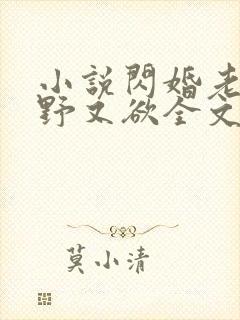 小說閃婚老
野又欲全文
莫小清